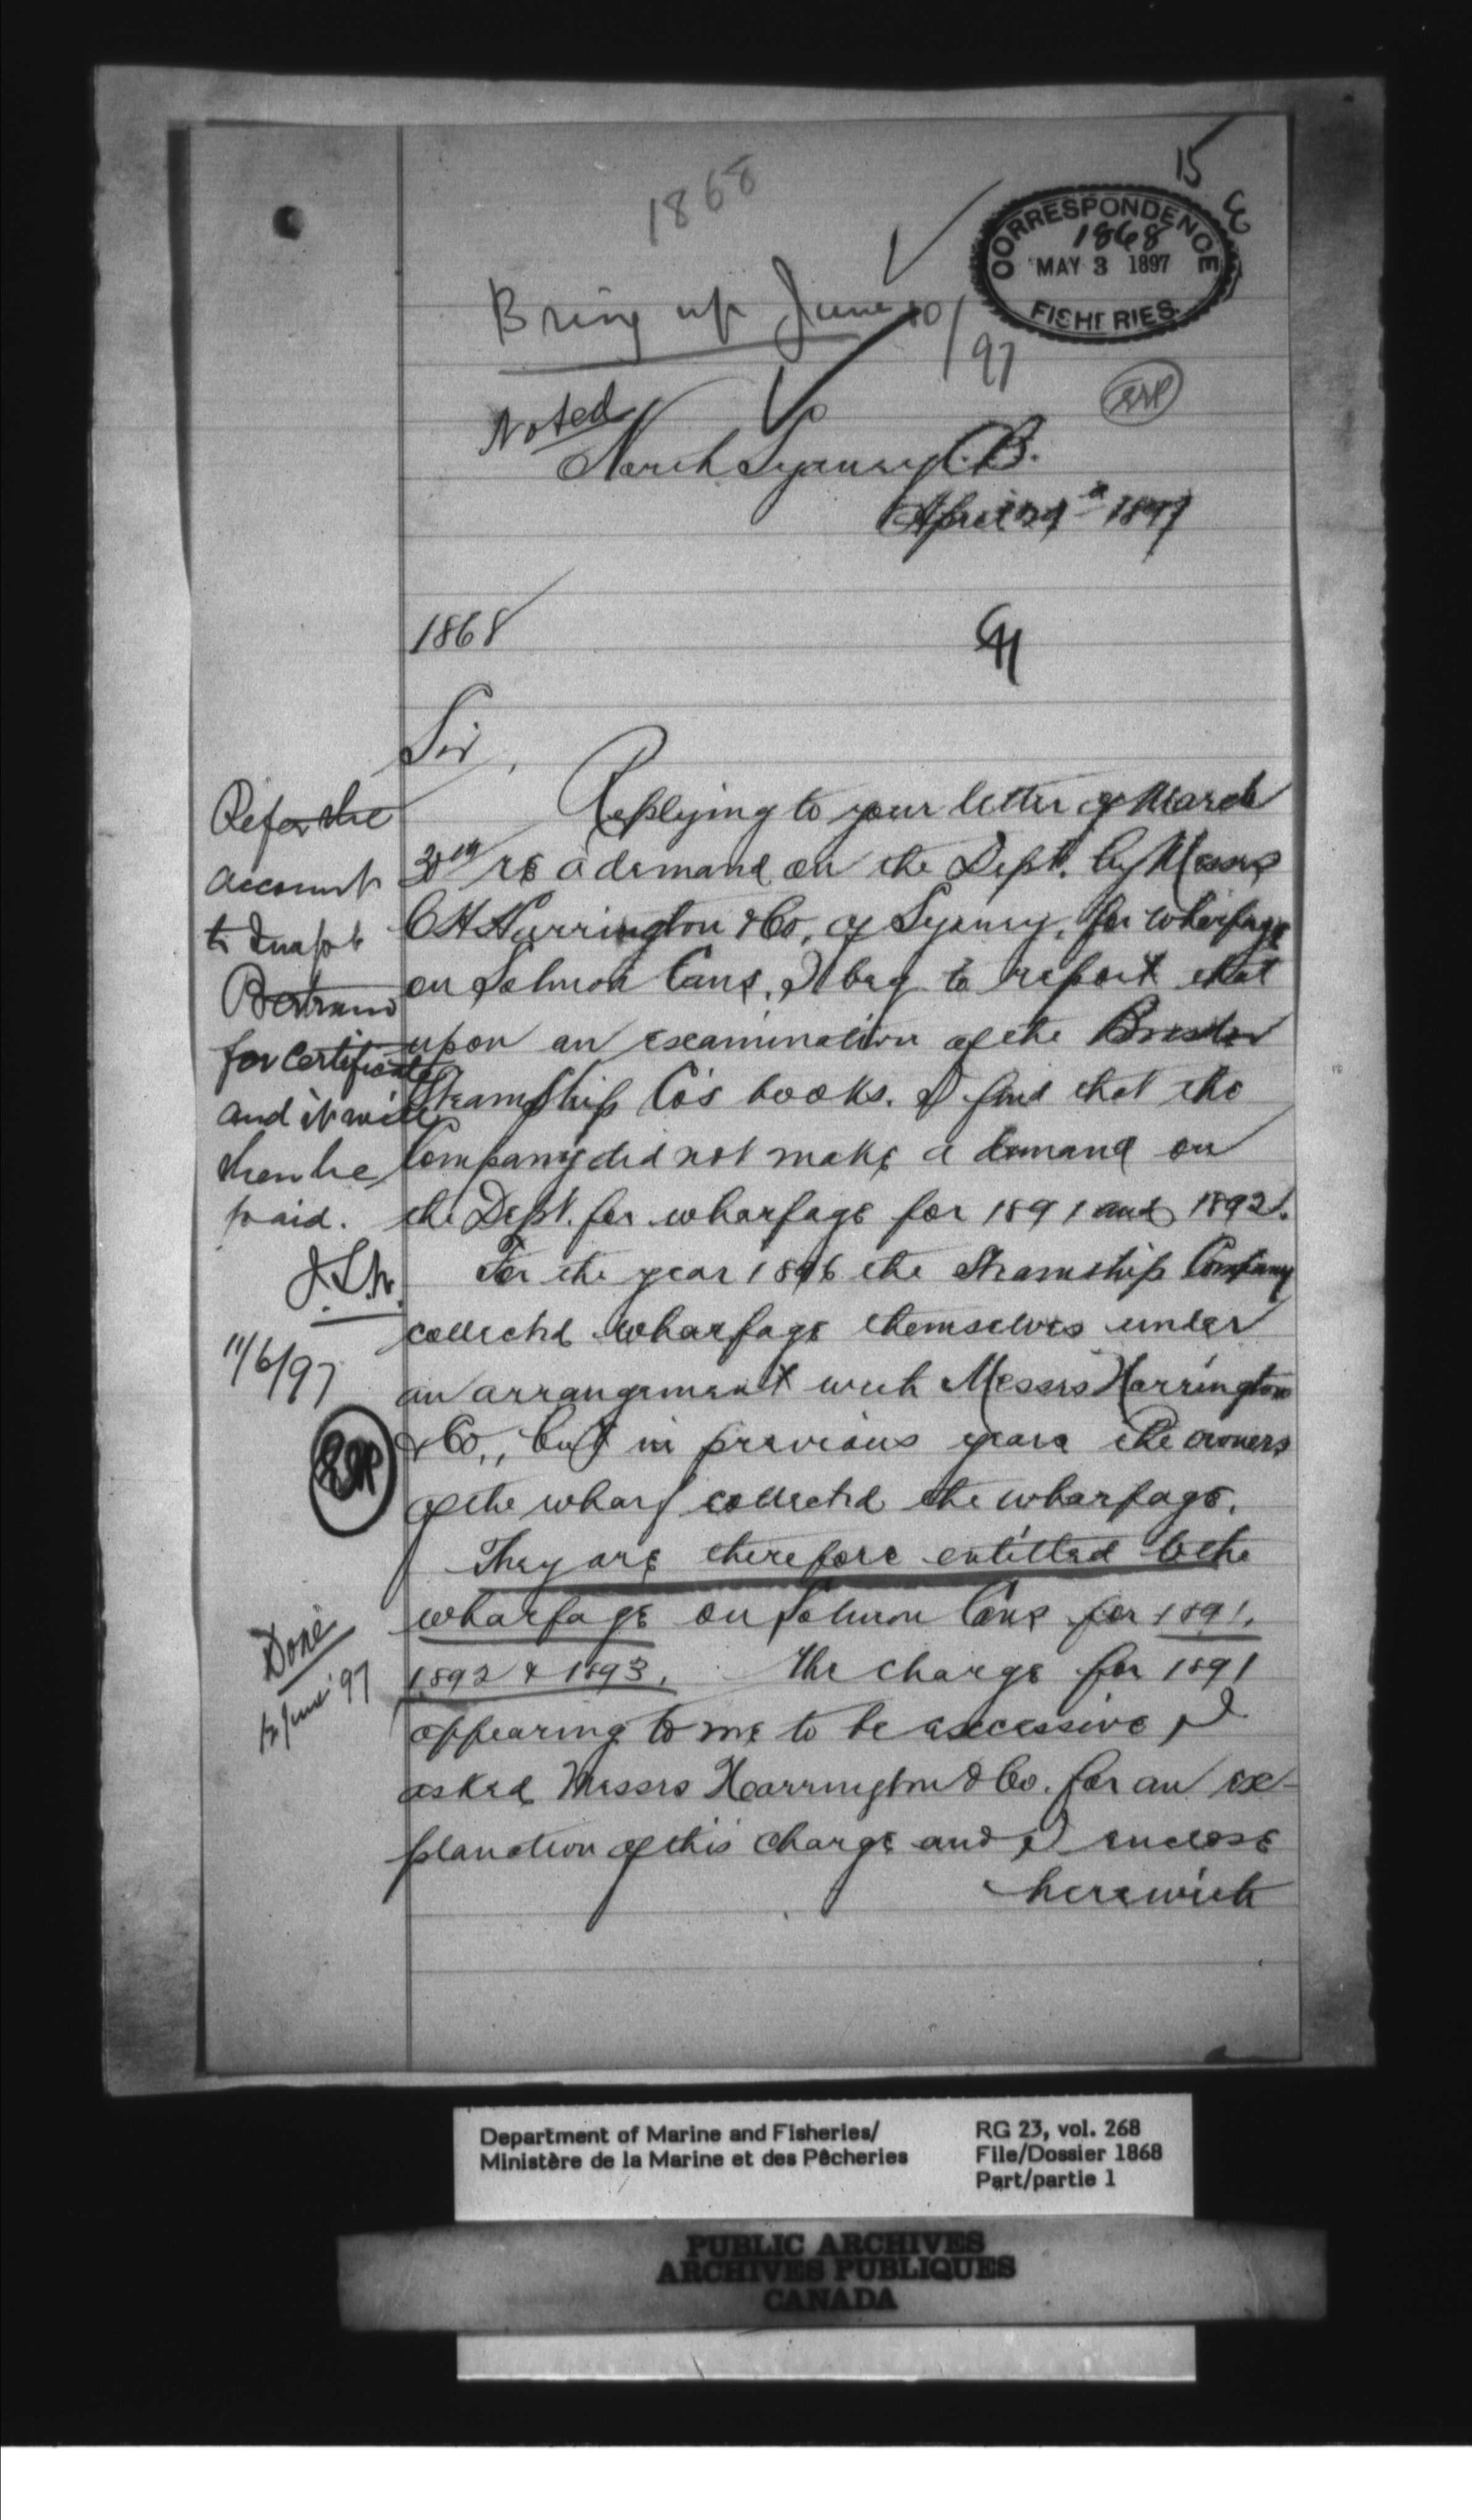 15
1868
CORRESPONDENCE
1868
MAY 3 1897
FISHERIES
Bring up June 10/97
Noted
North Sydney C.B.
April 29th 1897
1868
Sir,
Replying to your letter of March
30th re a demand on the Dept. by Messrs
C H Harrington & Co, of Sydney, for wharfage
on Salmon Cans, I beg to report that
upon an examination of the
Steamship Co's books. I find that the
Company did not make a demand on
the Dept. for wharfage for 1891 and 1892.
For the year 1896 the Steamship Company
collected wharfage themselves under
an arrangement with Messrs Harrington
& Co., but in previous years the owners
of the wharf collected the wharfage.
They are therefore entitled to the
wharfage on Salmon Cans for 1891.
1892 & 1893. The charge for 1891
appearing to me to be excessive, I
asked Messrs Harrington & Co. for an ex-
planation of this charge and I enclose
herewith
Refer the
account
to Inspr
Bertram
for certificate
and it will
then be
paid.
11/6/97
Done
12 June '97
Department of Marine and Fisheries/
Ministère de la Marine et des Pêcheries
RG 23, vol. 268
File/Dossier 1868
Part/partie 1
PUBLIC ARCHIVES
ARCHIVES PUBLIQUES
CANADA